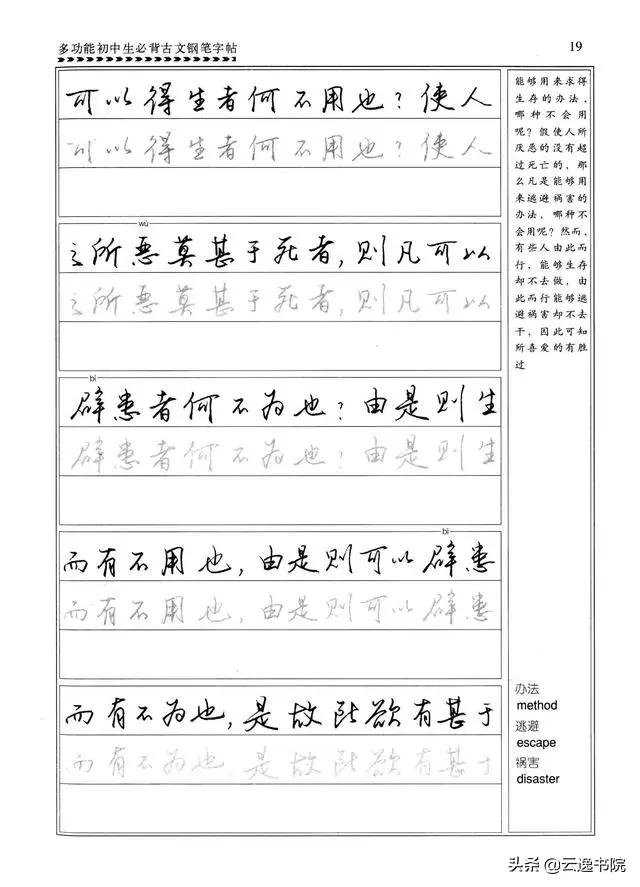 多功能初中生必背古文钢笔字帖
19
可以得生者何不用也？使人
可以得生者何不用也？使人
wù
之所恶莫甚于死者，则凡可以
之所恶莫甚于死者，则凡可以
bì
辟患者何不为也？由是则生
辟患者何不为也？由是则生
bì
而有不用也，由是则可以辟患
而有不用也，由是则可以辟患
而有不为也，是故所欲有甚于
而有不为也，是故所欲有甚于
能够用来求得
生存的办法，
哪种不会用
呢？假使人所
厌恶的没有超
过死亡的，那
么凡是能够用
来逃避祸害的
办法，哪种不
会用呢？然而，
有些人由此而
行，能够生存
却不去做，由
此而行能够逃
避祸害却不去
干，因此可知
所喜爱的有胜
过
办法
method
逃避
escape
祸害
disaster
头条@云逸书院